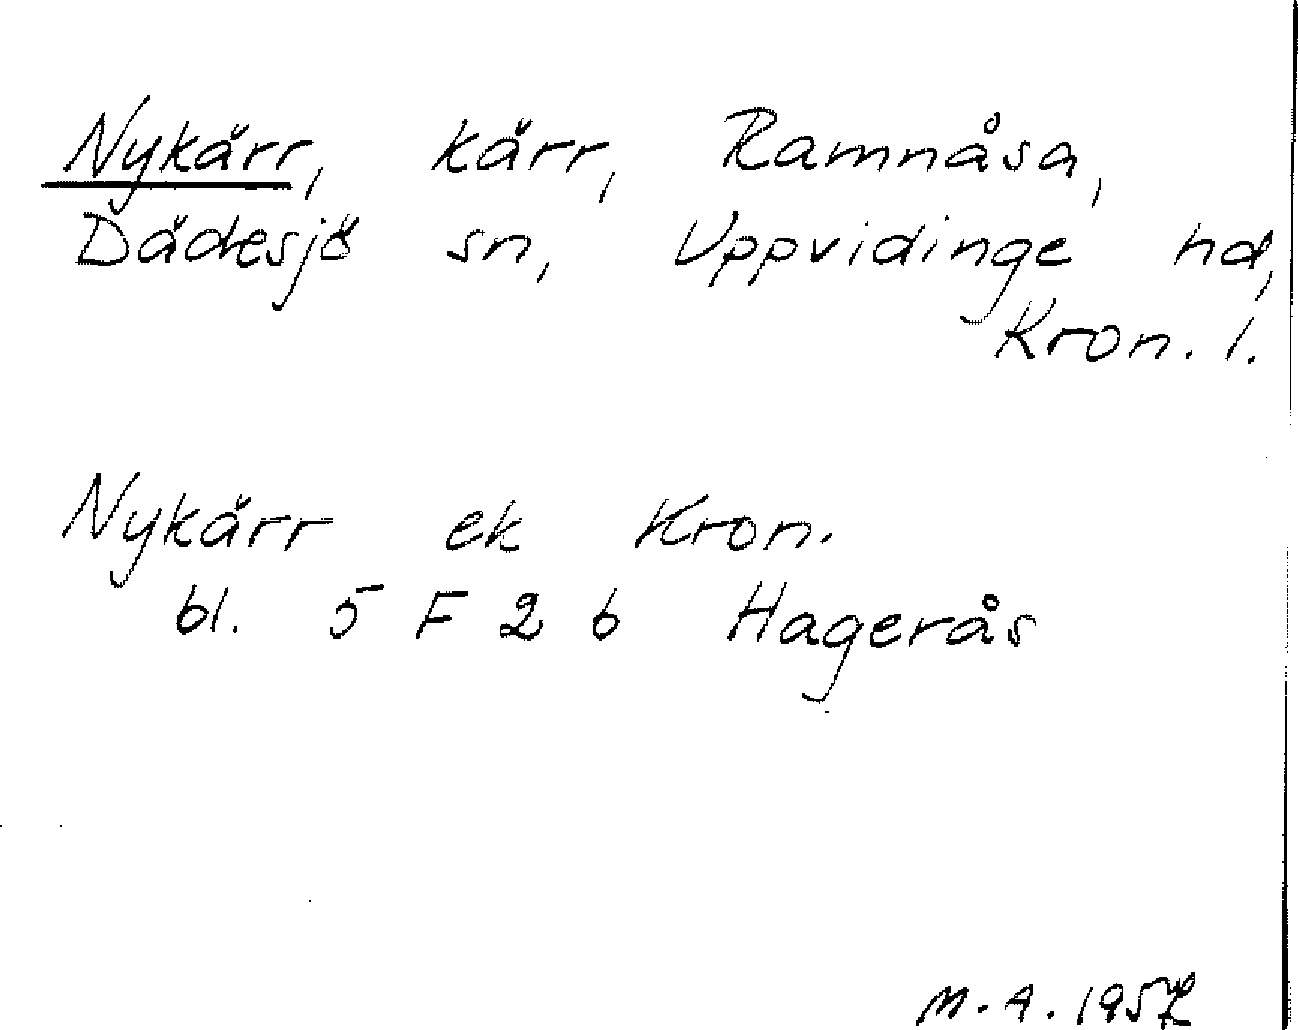 Nykärr, kärr, Ramnåsa,
Dädesjö sn, Uppvidinge hd,
Kron. l.
Nykärr ek Kron.
bl. 5 F 2 b Hagerås
M. A. 1957